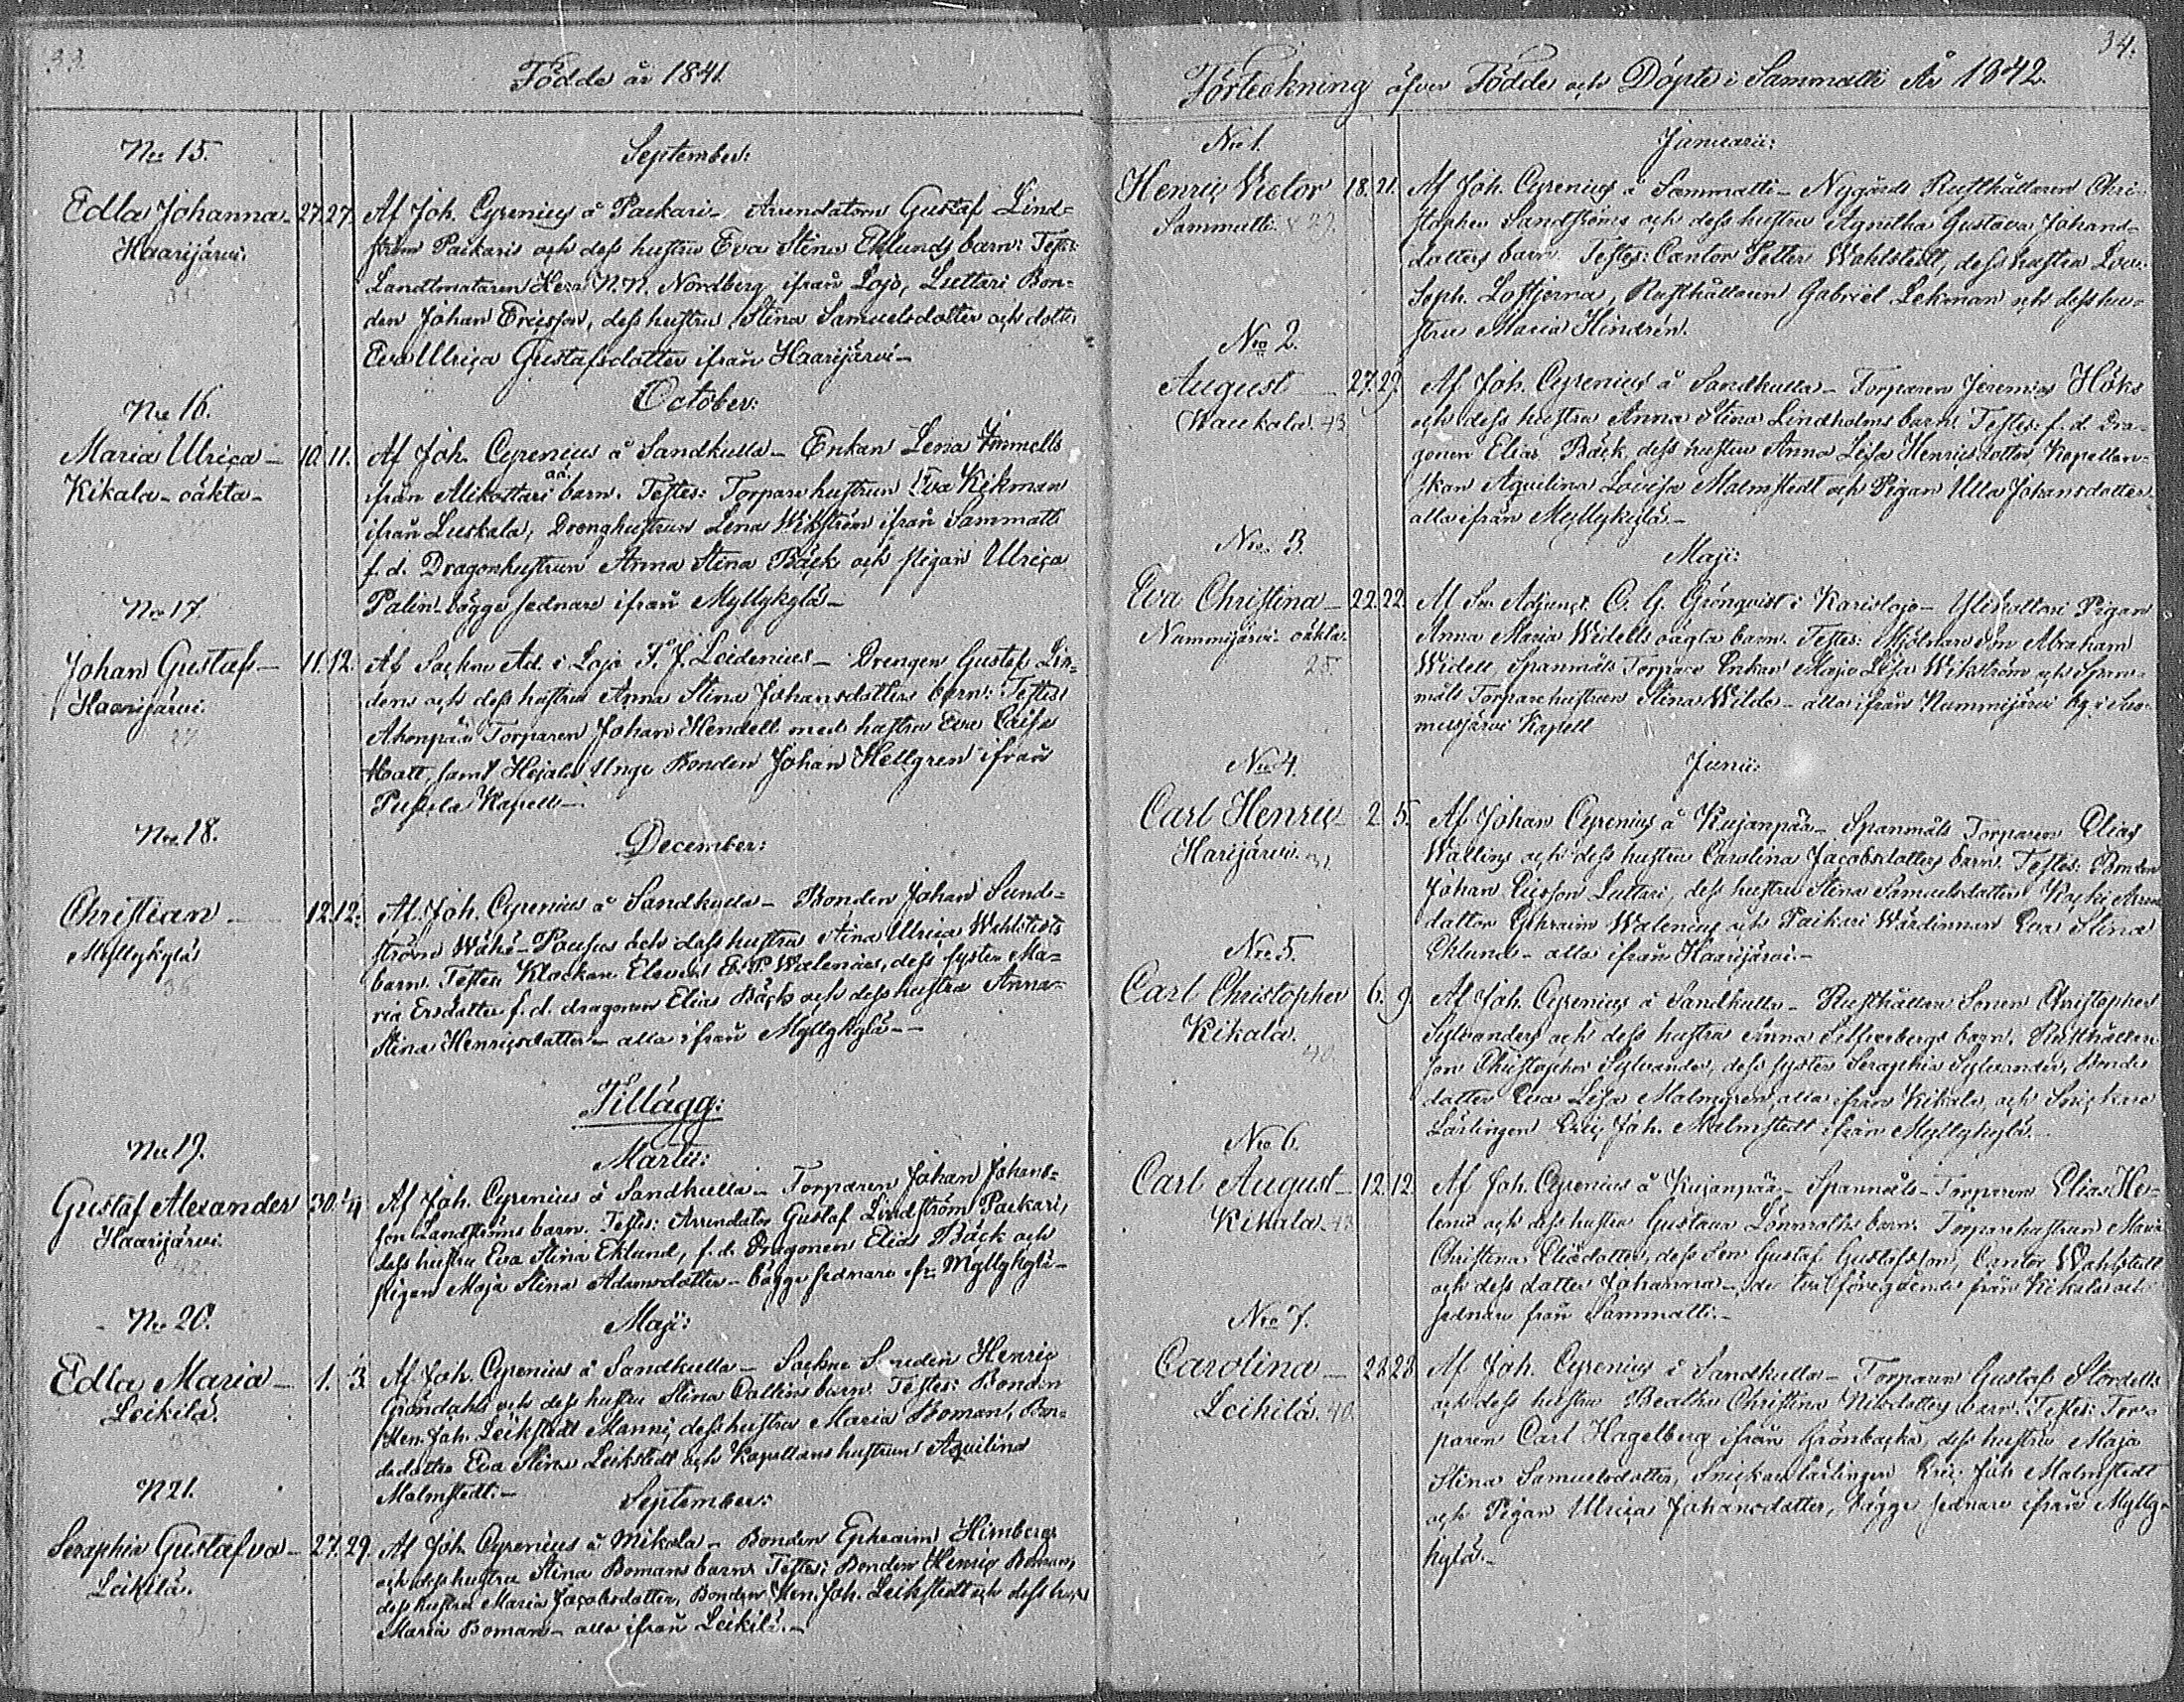 33.
Födde år 1841.
No 15.
September:
Edla Johanna 27. 27. Af Joh. Cyrenius å Paikari, Arrendatorn Gustaf Lind-
Haarijärvi. ström Paikaris och dess hustru Eva Stina Eklunds barn: Testes:
Landtmätaren Herr N.N. Nordberg ifrån Lojo, Luttari Bon-
den Johan Ericsson, dess hustru Stina Samuelsdotter och dotter
Eva Ulrica Gustafsdotter ifrån Haarijärvi
No 16.
October:
Maria Ulrica 10. 11. Af Joh. Cyrenius å Sandkulla Enkan Lena
Kikala oäkta ifrån Alikottari oä. barn. Testes: Torpare hustrun Eva Kikman
ifrån Leikkala, Drenghustrun Lena Wikström ifrån Sammatti
f.d. Dragonhustrun Anna Stina Bäck och pigan Ulrica
Palin bägge sednare ifrån Myllykylä
No 17.
Johan Gustaf 11. 12. Af Sockne Ad. i Lojo F. J. Leidenius Drengen Gustaf Lin-
Haarijärvi. dens och dess hustru Anna Stina Johansdotters barn: Testes
27
Ahonpää Torparen Johan Hendell med hustru Eva Caisa
samt Hejala Unge Bonden Johan Hellgren ifrån
Pusula Kapell
No 18.
December:
Christian 12. 12. Af Joh. Cyrenius å Sandkulla Bonden Johan Sund-
Myllykylä ströms Wähä-Paufus och dess hustru Stina Ulrica Wahlstedts
barn. Testes Klockare Eleven E. P. Walenius, dess syster Ma-
ria Ersdotter f.d. dragonen Elias Bäck och dess hustru Anna
Stina Henricsdotter alla ifrån Myllykylä
Tillägg:
No 19.
Martii:
Gustaf Alexander 30. 1/4 Af Joh. Cyrenius å Sandkulla Torparen Johan Johans-
Haarijärvi. son Landströms barn. Testes: Arrendator Gustaf Lindström Paikari,
42.
dess hustru Eva Stina Eklund, f.d. Dragonen Elias Bäck och
pigan Maja Stina Adamsdotter bägge sednare ifr. Myllykylä
No 20.
Maji:
Edla Maria 1. 3. Af Joh. Cyrenius å Sandkulla Sockne Henric
Leikilä. Gröndahls och dess hustru Stina Dallins barn. Testes: Bonden
33.
Hen. Joh. Leikstedt Manni, dess hustru Maria Boman, Bon-
dedotter Eva Stina Leikstedt och Kapellans hustrun Aquilina
Malmstedt.
N 21.
September:
Seraphia Gustafva 27. 29. Af Joh. Cyrenius å Mikola Bonden Ephraim Himbergs
Leikilä. och dess hustru Stina Bomans barn Testes: Bonden Henric Boman,
29.
dess hustru Maria Jacobsdotter, Bonden Hen. Joh. Leikstedt och dess hu-
Maria Boman alla ifrån Leikilä.
34.
Förteckning öfver Födde och Döpte i Sammatti År 1842.
Nro 1.
Januarii:
Henric Victor 18. 21. Af Joh. Cyrenius å Sammatti Nygårds Rusthållaren Chri-
Sammatti. 29. stopher Sandströms och dess hustru Agnetha Gustava Johans-
dotters barn. Testes: Cantor Petter Wahlstedt, dess hustru Lov.
Soph. Loftjerna, Rusthållaren Gabriel Lekman och dess hu-
stru Maria Hindrén.
Nro 2.
August 27. 29. Af Joh. Cyrenius å Sandkulla Torparen Jeremias Höks
43 och dess hustru Anna Stina Lindholms barn. Testes: f.d. Dra-
gonen Elias Bäck, dess hustru Anna Lisa Henricsdotter, Kapellan-
skan Aquilina Lovisa Malmstedt och Pigan Ulla Johansdotter
alla ifrån Myllykylä.
Nro 3.
Maji:
Eva Christina 22. 22. Af Adjunct. C. G. Grönqvist i Karislojo Ylikottari Pigan
Nummijärvi oäkta Anna Maria Widells oägta barn. Testes: Mjölnare Son Abraham
25.
Widell Spanmåls Torpare Enkan Maja Lisa Wikström och Span-
måls Torpare hustrun Stina Wilda alla ifrån Nummijärvi by i Suo-
musjärvi Kapell
Nro 4.
Junii:
Carl Henric 2. 5. Af Johan Cyrenius å Kujanpää Spanmåls Torparen Elias
Harijärvi. Wallins och dess hustru Carolina Jacobsdotters barn. Testes: Bonden
Johan Ericsson Luttari, dess hustru Stina Samuelsdotter, Koski Arren-
dator Ephraim Walenius och Paikari Wärdinnan Eva Stina
Eklund alla ifrån Haarijärvi.
Nro 5.
Carl Christopher 6. 9. Af Joh. Cyrenius å Sandkulla Rusthållare Sonen Christopher
Kikala. Sylvanders och dess hustru Anna Silfverbergs barn. Rusthållare
40.
son Christopher Sylvander, dess syster Seraphia Sylvander, Bonde
dotter Eva Lisa Malmgren, alla ifrån Kikala, och Snickare
Lärlingen Eric Joh. Malmstedt ifrån Myllykylä.
Nro 6.
Carl August 12. 12. Af Joh. Cyrenius å Kujanpää Spanmåls-Torparen Elias He-
Kikala. 43 lenii och dess hustru Gustava Lönnroths barn. Torparehustrun Maria
Christina Eliædotter, dess Son Gustaf Gustafsson, Cantor Wahlstedt
och dess dotter Johanna de två föregående från Kikala och
sednare från Sammatti.
Nro 7.
Carolina 28. 28. Af Joh. Cyrenius å Sandkulla Torparen Gustaf Stördells
Leikilä. 40. och dess hustru Beatha Christina Nilsdotters barn. Testes: Tor-
paren Carl Hagelberg ifrån Grönbacka, dess hustru Maja
Stina Samuelsdotter, Snickare lärlingen Eric Joh Malmstedt
och Pigan Ulrica Johansdotter, bägge sednare ifrån Mylly-
kylä.